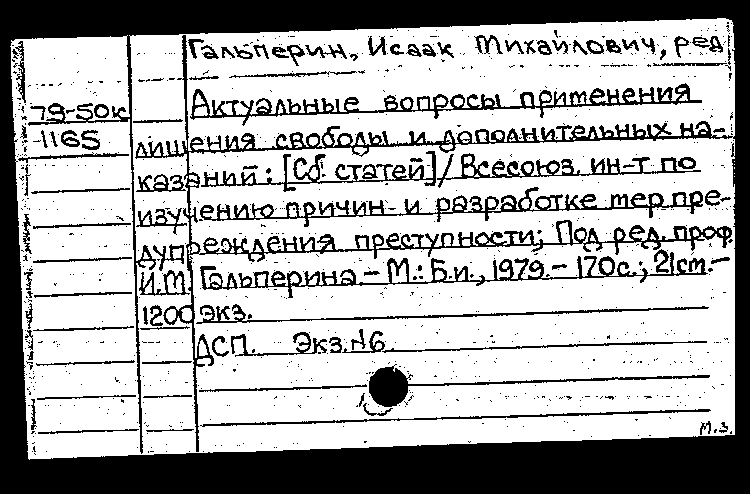 Гальперин, Исаак Михайлович, ред
79-50к Актуальные вопросы применения
1165 лишения свободы и дополнительных на-
казаний: [Сб. статей] / Всесоюз. ин-т по
изучению причин и разработке мер пре-
дупреждения преступности; Под ред. проф
И.М. Гальперина.- М.: Б.и., 1979.- 170с.; 21см.-
1200 экз.
ДСП. Экз.№6
м.з.